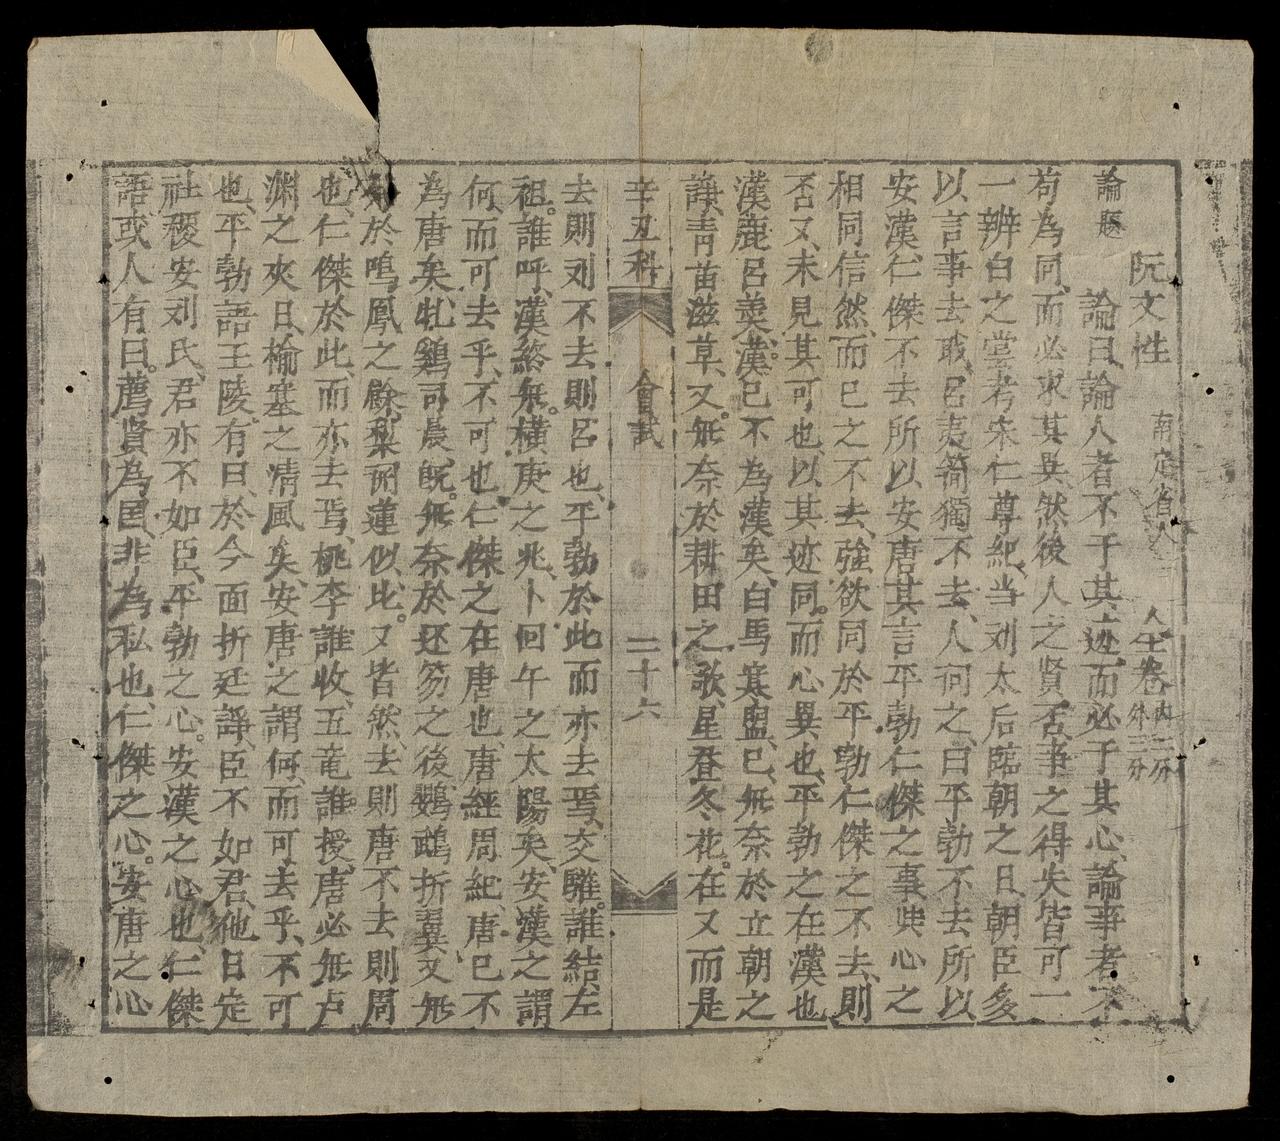 論題
阮文性 南定省人 人全卷內二分外三分
論曰、論人者不于其迹、而必于其心、論事者不
苟為同、而必求其異、然後人之賢否、事之得失、皆可一
一辨白之、嘗考宋仁尊紀、当刘太后臨朝之日、朝臣多
以言事去職、呂夷簡獨不去、人问之、曰平勃不去、所以
安漢、仁傑不去、所以安唐、其言平勃仁傑之事與心之
相同信然、而己之不去、強欲同於平勃仁傑之不去、則
否又未見其可也、以其迹同。而心異也、平勃之在漢也
漢鹿呂羹、漢已不為漢矣、白馬寒盟、已無奈於立朝之
諱、青苗滋草、又無奈於耕田之歌、星登冬花。在又而是
辛丑科 會試 二十六
去則刘、不去則呂也、平勃於此而亦去焉、交驩。誰結、左
祖。誰呼、漢煞無。橫庚之兆、卜回午之太陽矣、安漢之謂
何、而可去乎、不可也、仁傑之在唐也、唐經周紀、唐已不
為唐矣、牝雞司晨、既。無奈於还笏之後、鸚鵡折翼、又無
於鳴鳳之餘、葉開蓮似、比。又皆然、去則唐、不去則周
也、仁傑於此、而亦去焉、桃李誰收、五竜誰授、唐必無卢
渊之夾日、榆塞之清風矣、安唐之謂何、而可去乎、不可
也、平勃語王陵。有曰、於今面折廷諍、臣不如君、他日定
社稷安刘氏、君亦不如臣、平勃之心。安漢之心也、仁傑
語或人有曰。薦賢為国、非為私也、仁傑之心。安唐之心